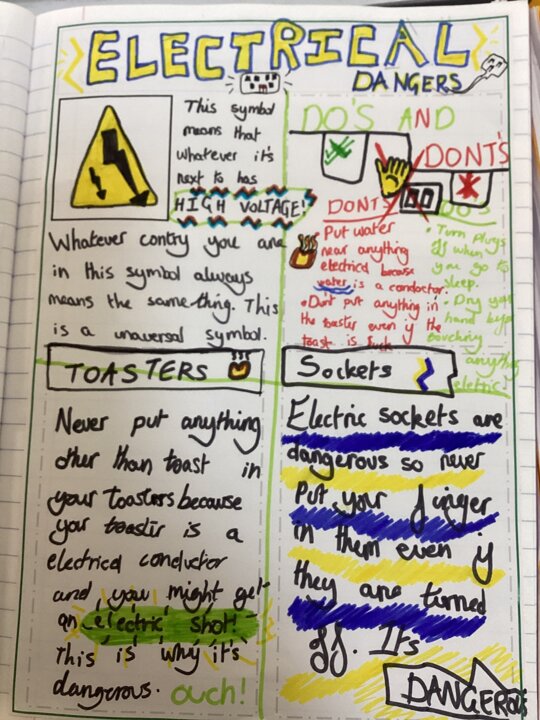 ELECTRICAL
DANGERS
This symbol
means that
whatever it's
next to has
HIGH VOLTAGE!
Whatever contry you are
in this symbol always
means the same thing. This
is a unaversal symbol.
DO'S AND
DONT'S
DONTS
• Put water
near anything
electrical because
water is a conductor.
• Dont put anything in
the toaster even if the
toast is
DO'S
• Turn plugs
off when
you go to
sleep.
• Dry your
hand
touching
anything
eletric!
TOASTERS
Never put anything
other than toast in
your toasters because
your toaster is a
electrical conductor
and you might get
an electric shot!
This is why it's
dangerous. ouch!
Sockets
Electric sockets are
dangerous so never
Put your finger
in them even if
they are turned
off. It's
DANGEROUS